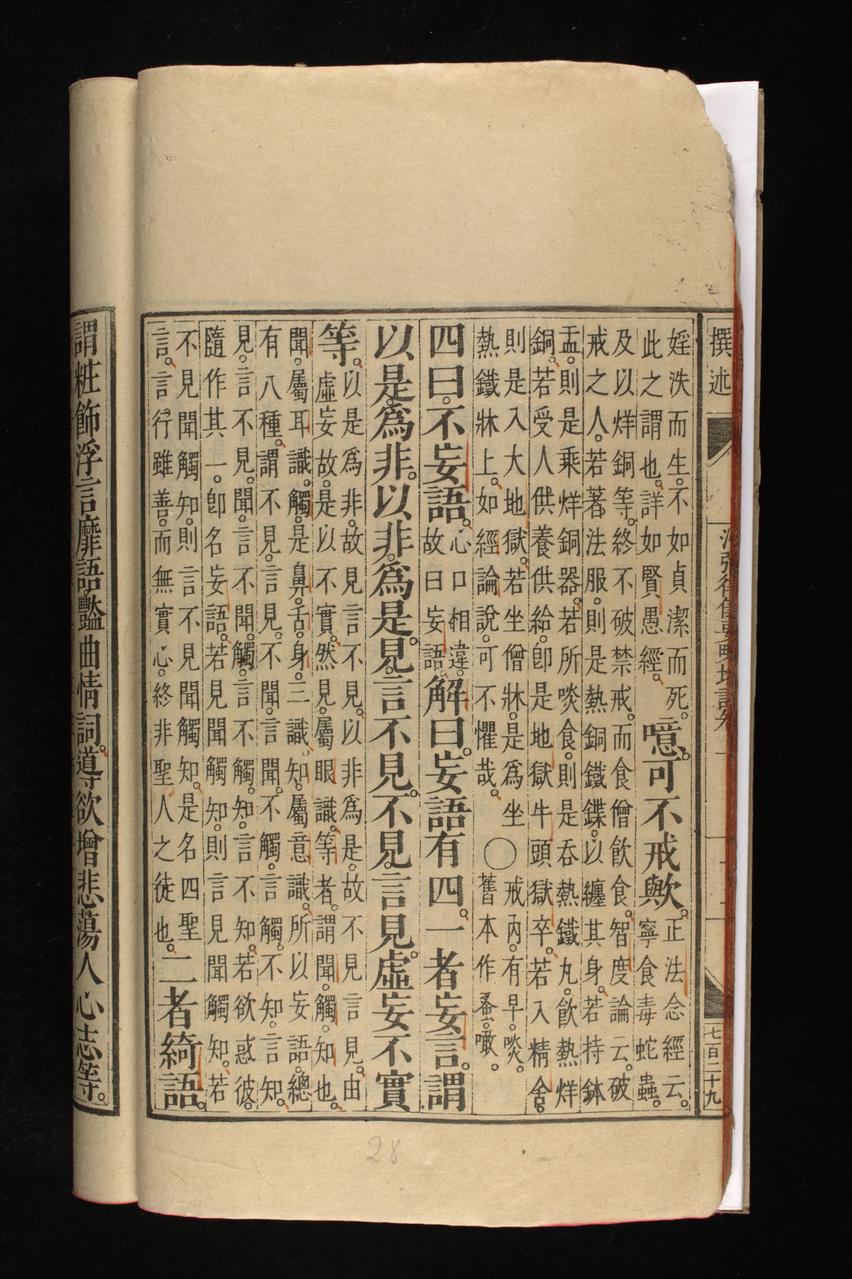 撰述
七百二十九
婬泆而生。不如貞潔而死。
此之謂也。詳如賢愚經。
噫。可不戒歟。
正法念經云。
寧食毒蛇蟲。
及以烊銅等。終不破禁戒。而食僧飲食。智度論云。破
戒之人。若著法服。則是熱銅鐵鍱。以纏其身。若持鉢
盂。則是乘烊銅器。若所啖食。則是吞熱鐵丸。飲熱烊
銅。若受人供養供給。卽是地獄牛頭獄卒。若入精舍。
則是入大地獄。若坐僧牀。是為坐
熱鐵牀上。如經論說。可不懼哉。
○
戒內有早。啖。
舊本作蚤。噉。
四曰。不妄語。
心口相違。
故曰妄語。
解曰。妄語有四。一者妄言。謂
以是爲非。以非爲是。見言不見。不見言見。虛妄不實
等。
以是為非。故見言不見。以非為是。故不見言見。由
虛妄故。是以不實。然見屬眼識。等者。謂聞。觸。知也。
聞。屬耳識。觸。是鼻。舌。身。三識。知。屬意識。所以妄語。總
有八種。謂不見。言見。不聞。言聞。不觸。言觸。不知。言知。
見。言不見。聞。言不聞。觸。言不觸。知。言不知。若欲惑彼。
隨作其一。卽名妄語。若見聞觸知。則言見聞觸知。若
不見聞觸知。則言不見聞觸知。是名四聖
言。言行雖善。而無實心。終非聖人之徒也。
二者綺語。
謂粧飾浮言靡語。豔曲情詞。導欲增悲。蕩人心志等。
28